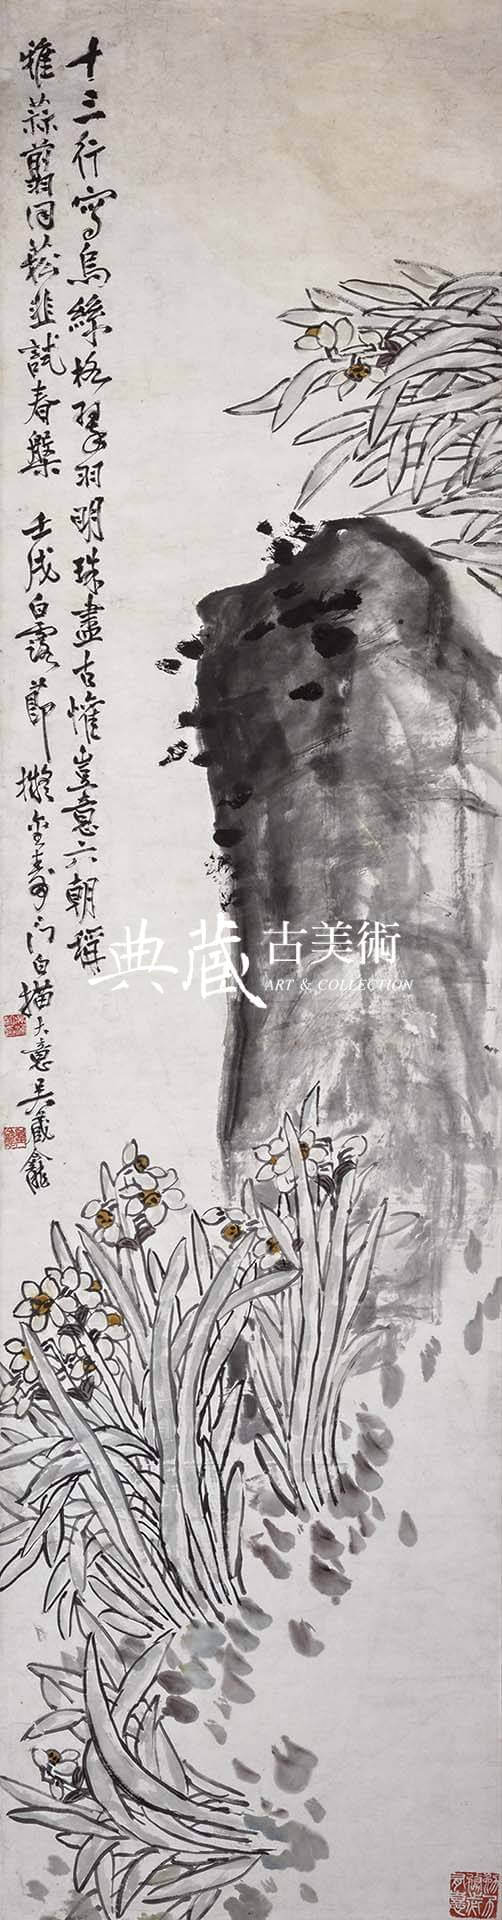 十三行寫烏絲格翠羽明珠盡古懽豈意六朝稱
雅蒜翦同菘韭試春槃 壬戌白露節擬金壽門白描大意吳藏龕
典藏 古美術
ART & COLLECTION